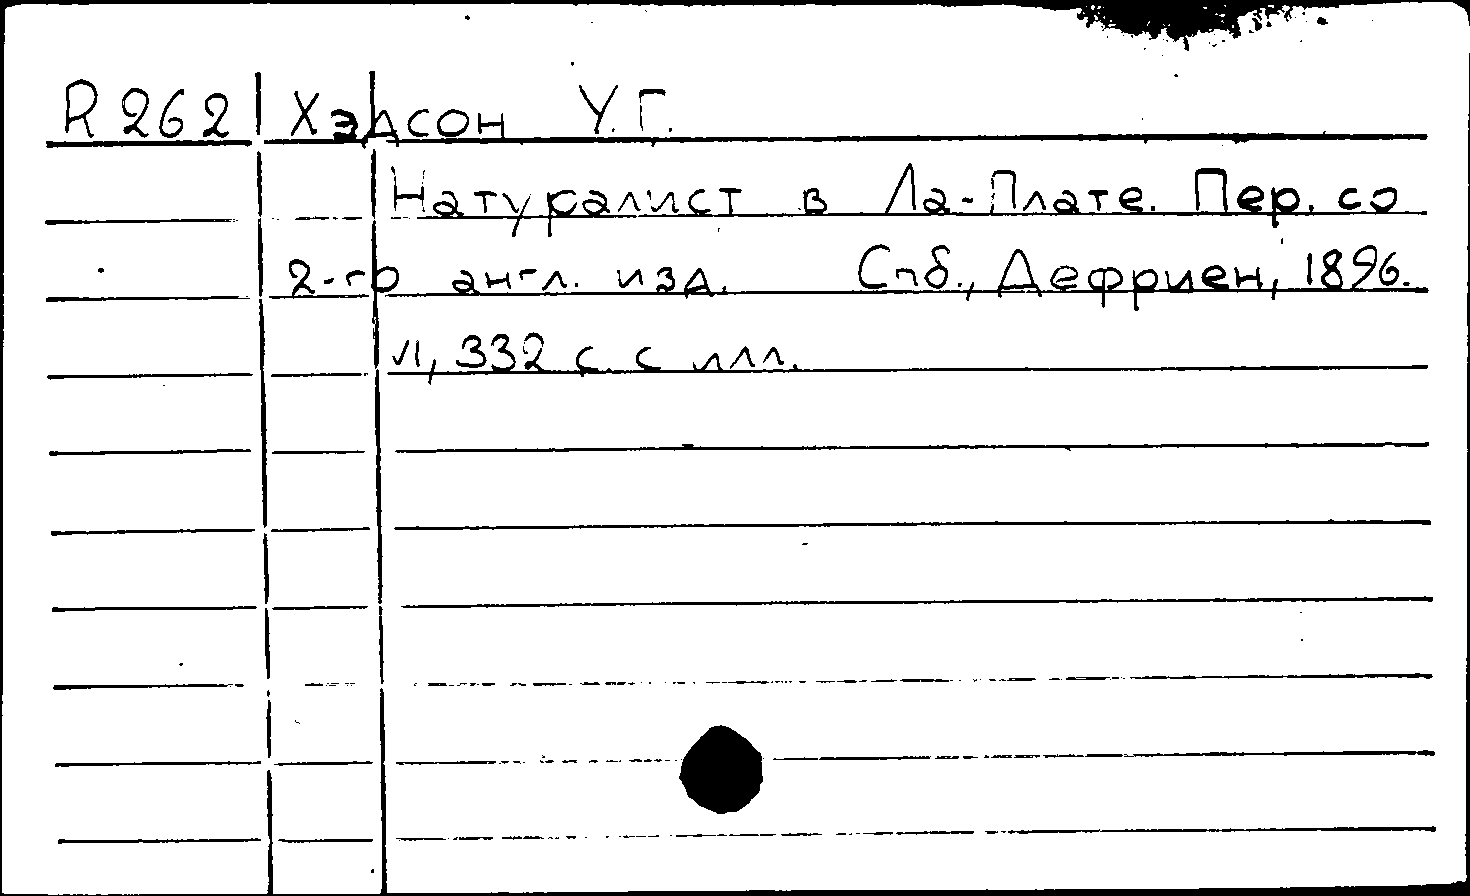 R 262 Хэдсон У.Г.
Натуралист в Ла-Плате. Пер. со
2-го англ. изд. Спб., Дефриен, 1896.
VI, 332 с. с илл.